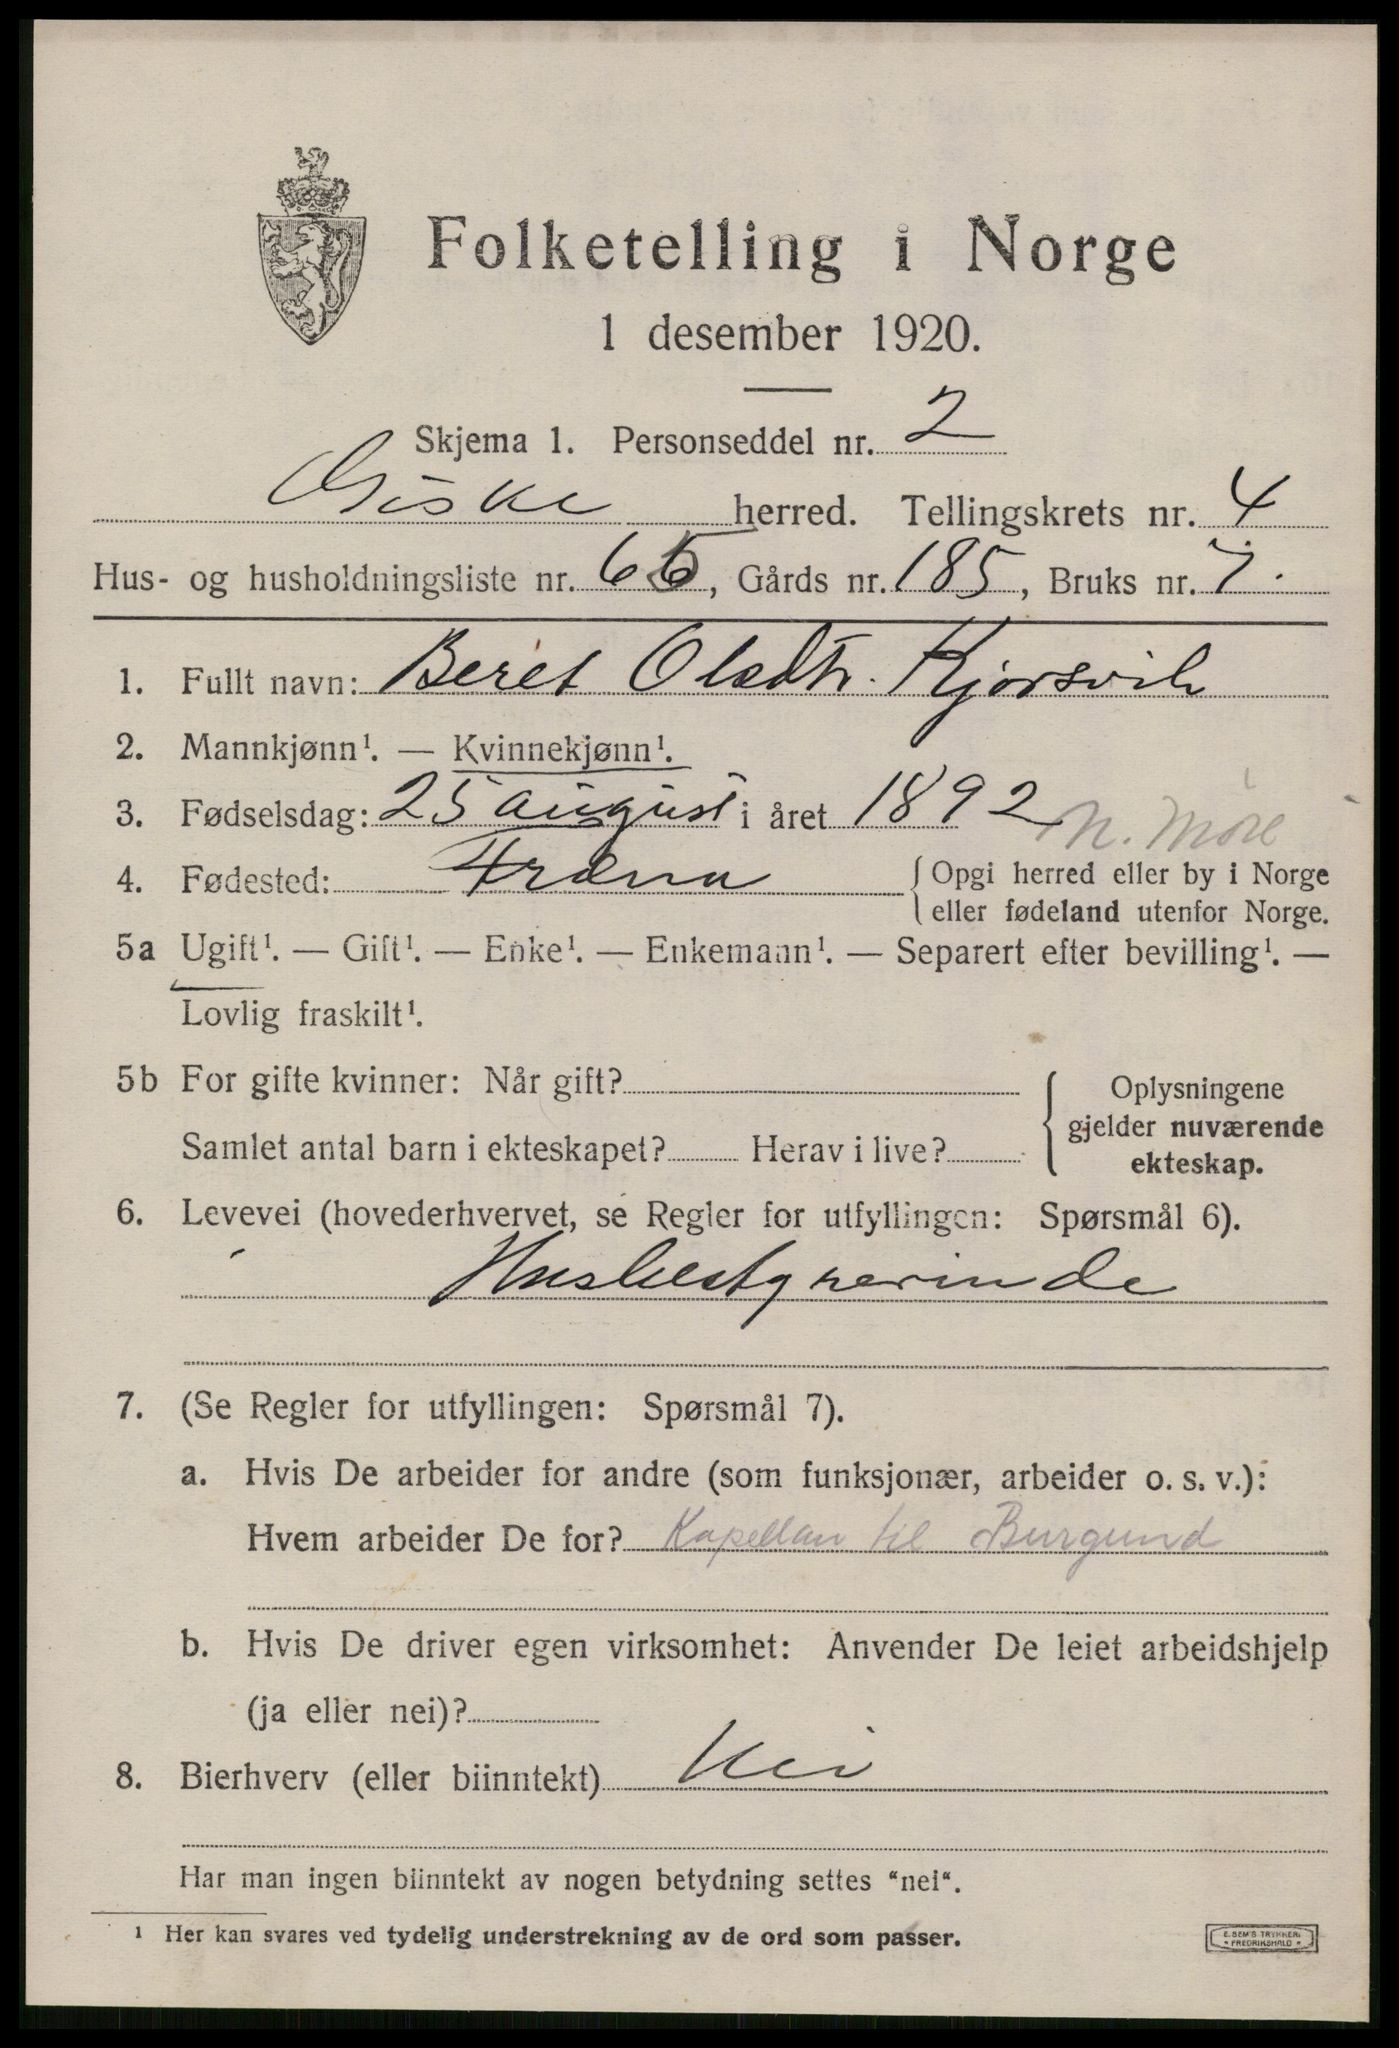 Folketelling i Norge
1 desember 1920.
Skjema 1. Personseddel nr. 2
Giske herred. Tellingskrets nr. 4
Hus- og husholdningsliste nr. 65, Gårds nr. 185, Bruks nr. 7.
1. Fullt navn: Beret Olsdtr. Kjørsvik
2. Mannkjønn¹. — Kvinnekjønn¹.
3. Fødselsdag: 25 august i året 1892
N. Møre
4. Fødested: Fræna { Opgi herred eller by i Norge
eller fødeland utenfor Norge.
5a Ugift¹. — Gift¹. — Enke¹. — Enkemann¹. — Separert efter bevilling¹. —
Lovlig fraskilt¹.
5b For gifte kvinner: Når gift?
Samlet antal barn i ekteskapet? Herav i live?
{ Oplysningene
gjelder nuværende
ekteskap.
6. Levevei (hovederhvervet, se Regler for utfyllingen: Spørsmål 6).
Husbestyrerinde
7. (Se Regler for utfyllingen: Spørsmål 7).
a. Hvis De arbeider for andre (som funksjonær, arbeider o. s. v.):
Hvem arbeider De for? Kapellan til Burgund
b. Hvis De driver egen virksomhet: Anvender De leiet arbeidshjelp
(ja eller nei)?
8. Bierhverv (eller biinntekt) Nei
Har man ingen biinntekt av nogen betydning settes "nei".
¹ Her kan svares ved tydelig understrekning av de ord som passer.
E. SEM'S TRYKKERI
FREDRIKSHALD